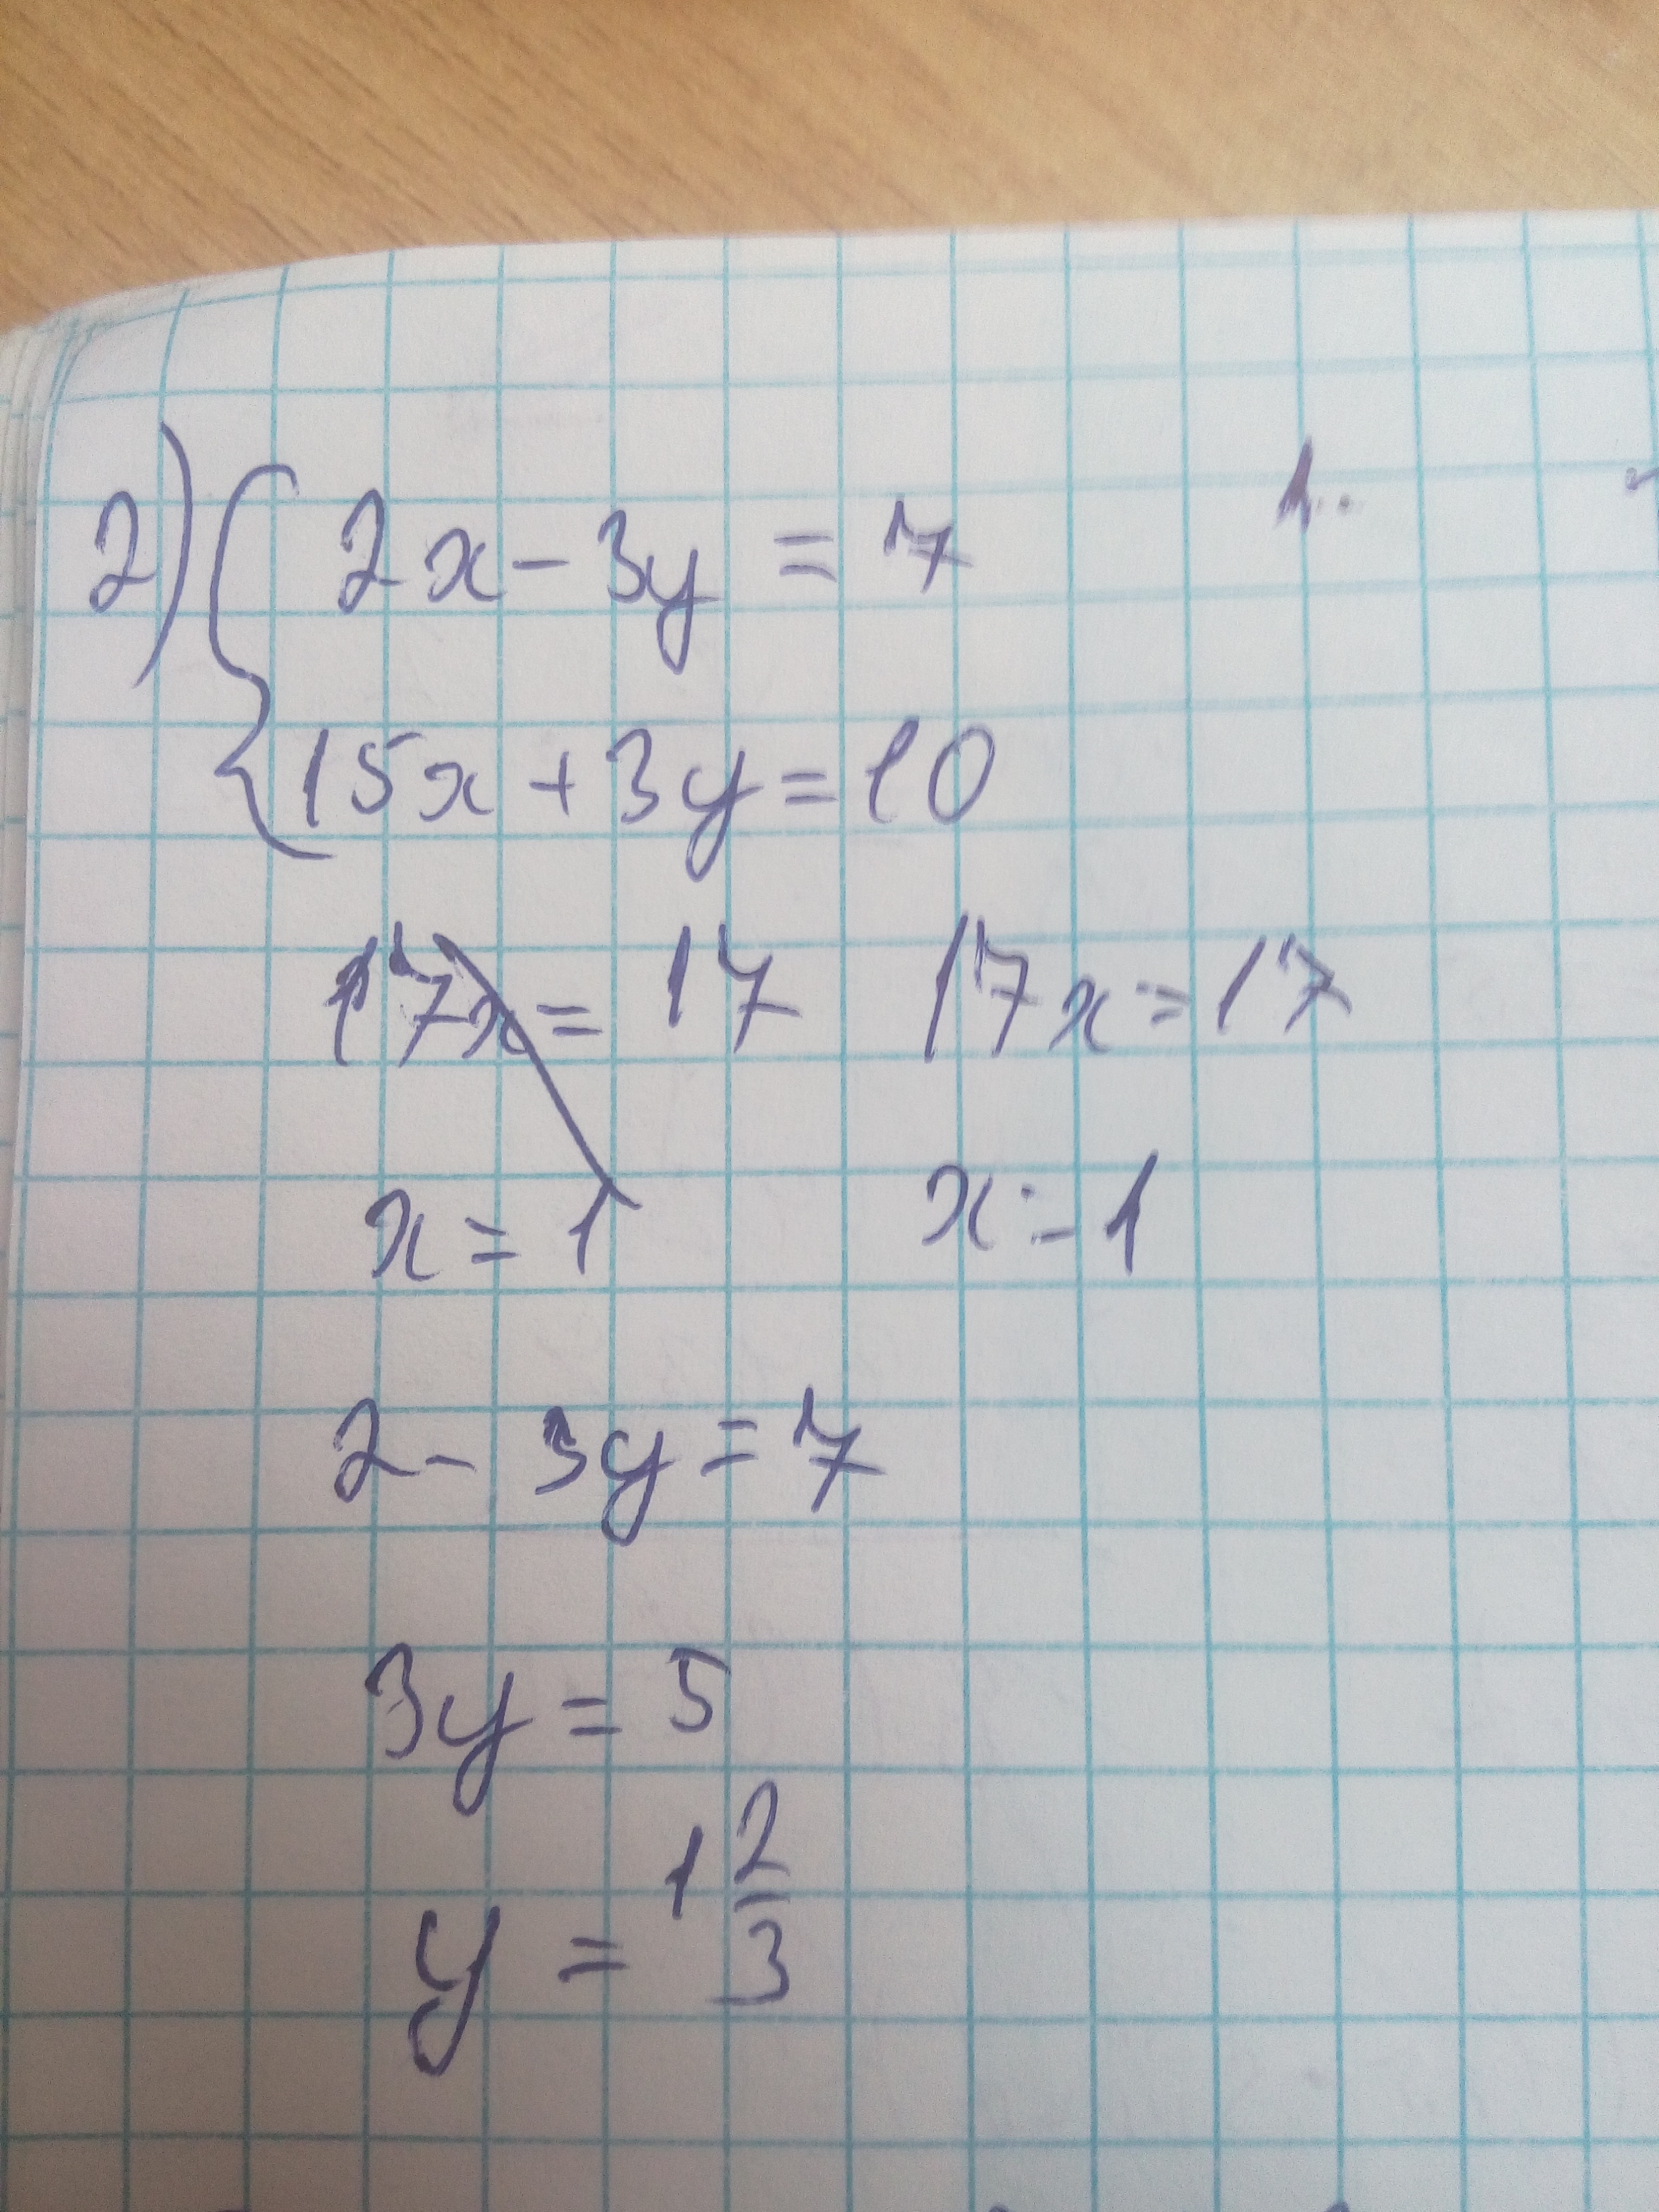 2) { 2x - 3y = 7 1.
15x + 3y = 10
17x = 17 17x = 17
x = 1 x = 1
2 - 3y = 7
3y = 5
y = 1 2/3